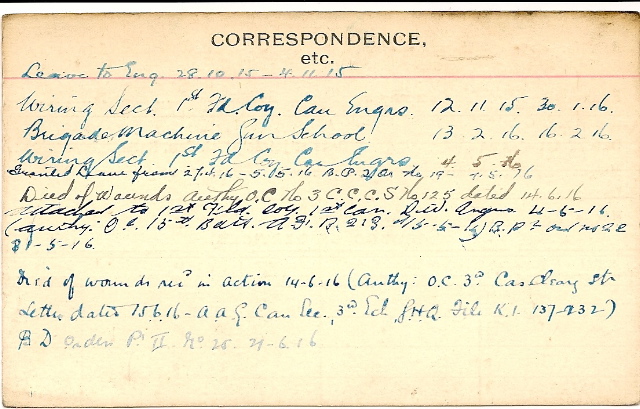 CORRESPONDENCE,
etc.
Leave to Eng. 28.10.15 - 4.11.15
Wiring Sect. 1st Fd. Coy. Can Engrs. 12.11.15. 30.1.16.
Brigade Machine Gun School. 13.2.16. 16.2.16
Wiring Sect. 1st Fd Coy Can Engrs 4. 5.
Granted Leave from 27.4.16 - 5.5.16 B.P.
Died of Wounds authy O.C. No 3 C.C.C.S No 125 dated 14.6.16
Attached to 1st Field Coy 1st Can. Div. Engrs 4-6-16.
(authy: O.C. 15th Batt. A.F. B. 213.
31-5-16.
Died of wounds rec'd in action 14-6-16 (Authy: O.C. 3rd Cas Clearg Stn
Letter dated 15.6.16 - A A G. Can Sec., 3rd Ech G.H.Q. File K.1. 137-832)
B D Orders Pt II No 20. 21-6.16